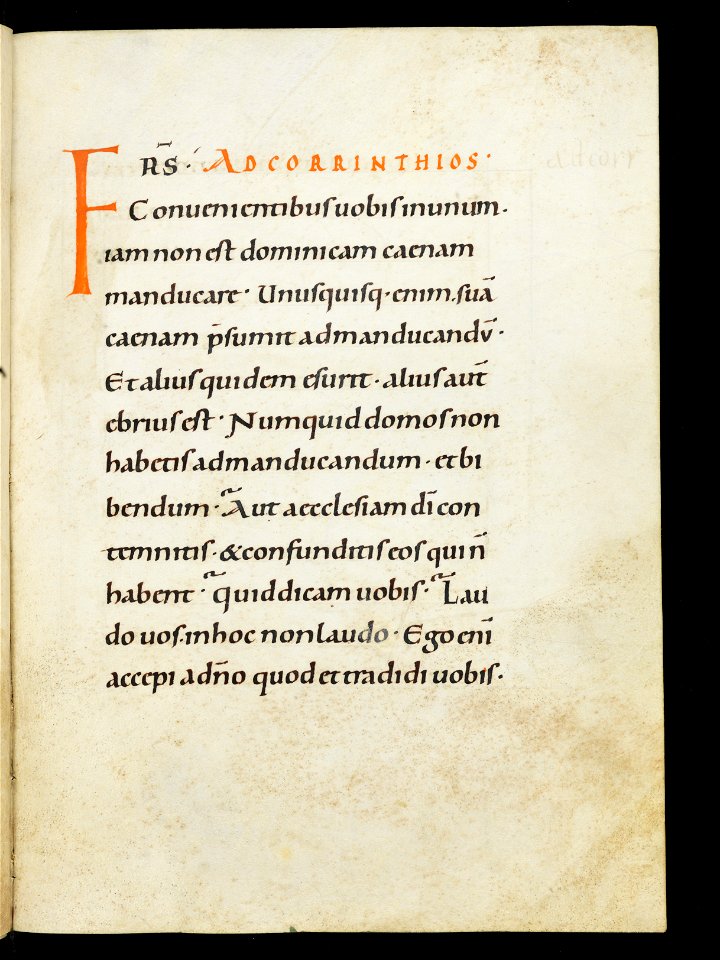 FR̄S · AD CORRINTHIOS ·
Conuenientibus uobis in unum .
iam non est dominicam caenam
manducare · Unusquisq · enim . suā
caenam p̄sumit ad manducandū ·
Et alius quidem esurit · alius aut̄
ebrius est · Numquid domos non
habetis ad manducandum · et bi
bendum · Aut aecclesiam dī con
temnitis · & confunditis eos qui n̄
habent · quid dicam uobis · Lau
do uos . in hoc non laudo · Ego enī
accepi a dn̄o quod et tradidi uobis ·